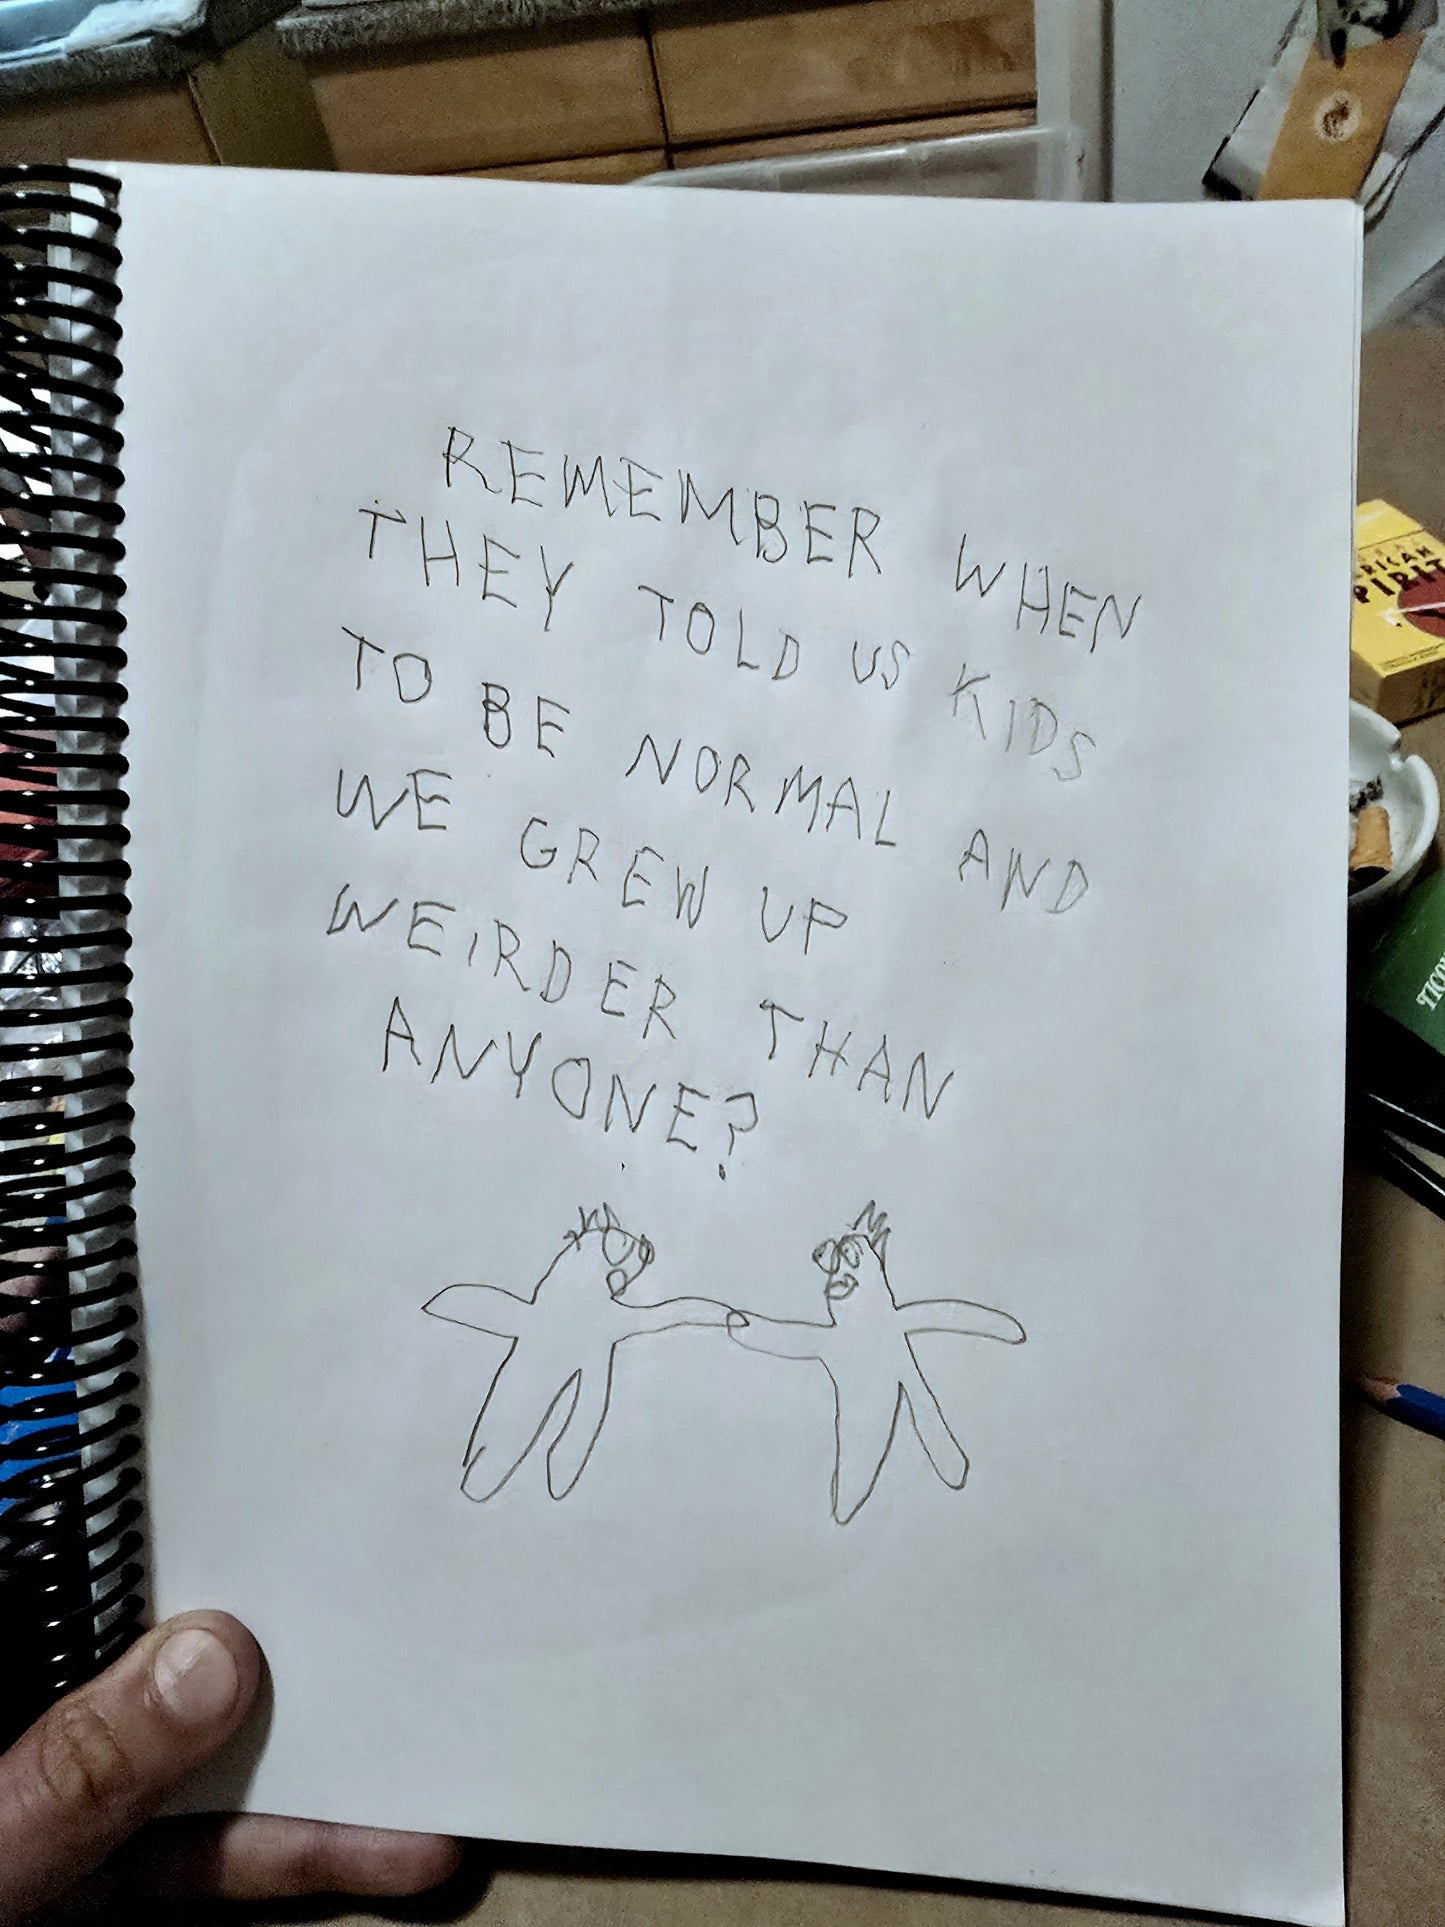 REMEMBER WHEN
THEY TOLD US KIDS
TO BE NORMAL AND
WE GREW UP
WEIRDER THAN
ANYONE?
RICAN
PIRIT
TICO